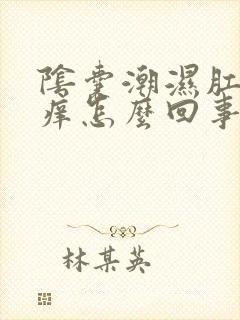 陰囊潮濕肛
痒怎麼回事
林某英